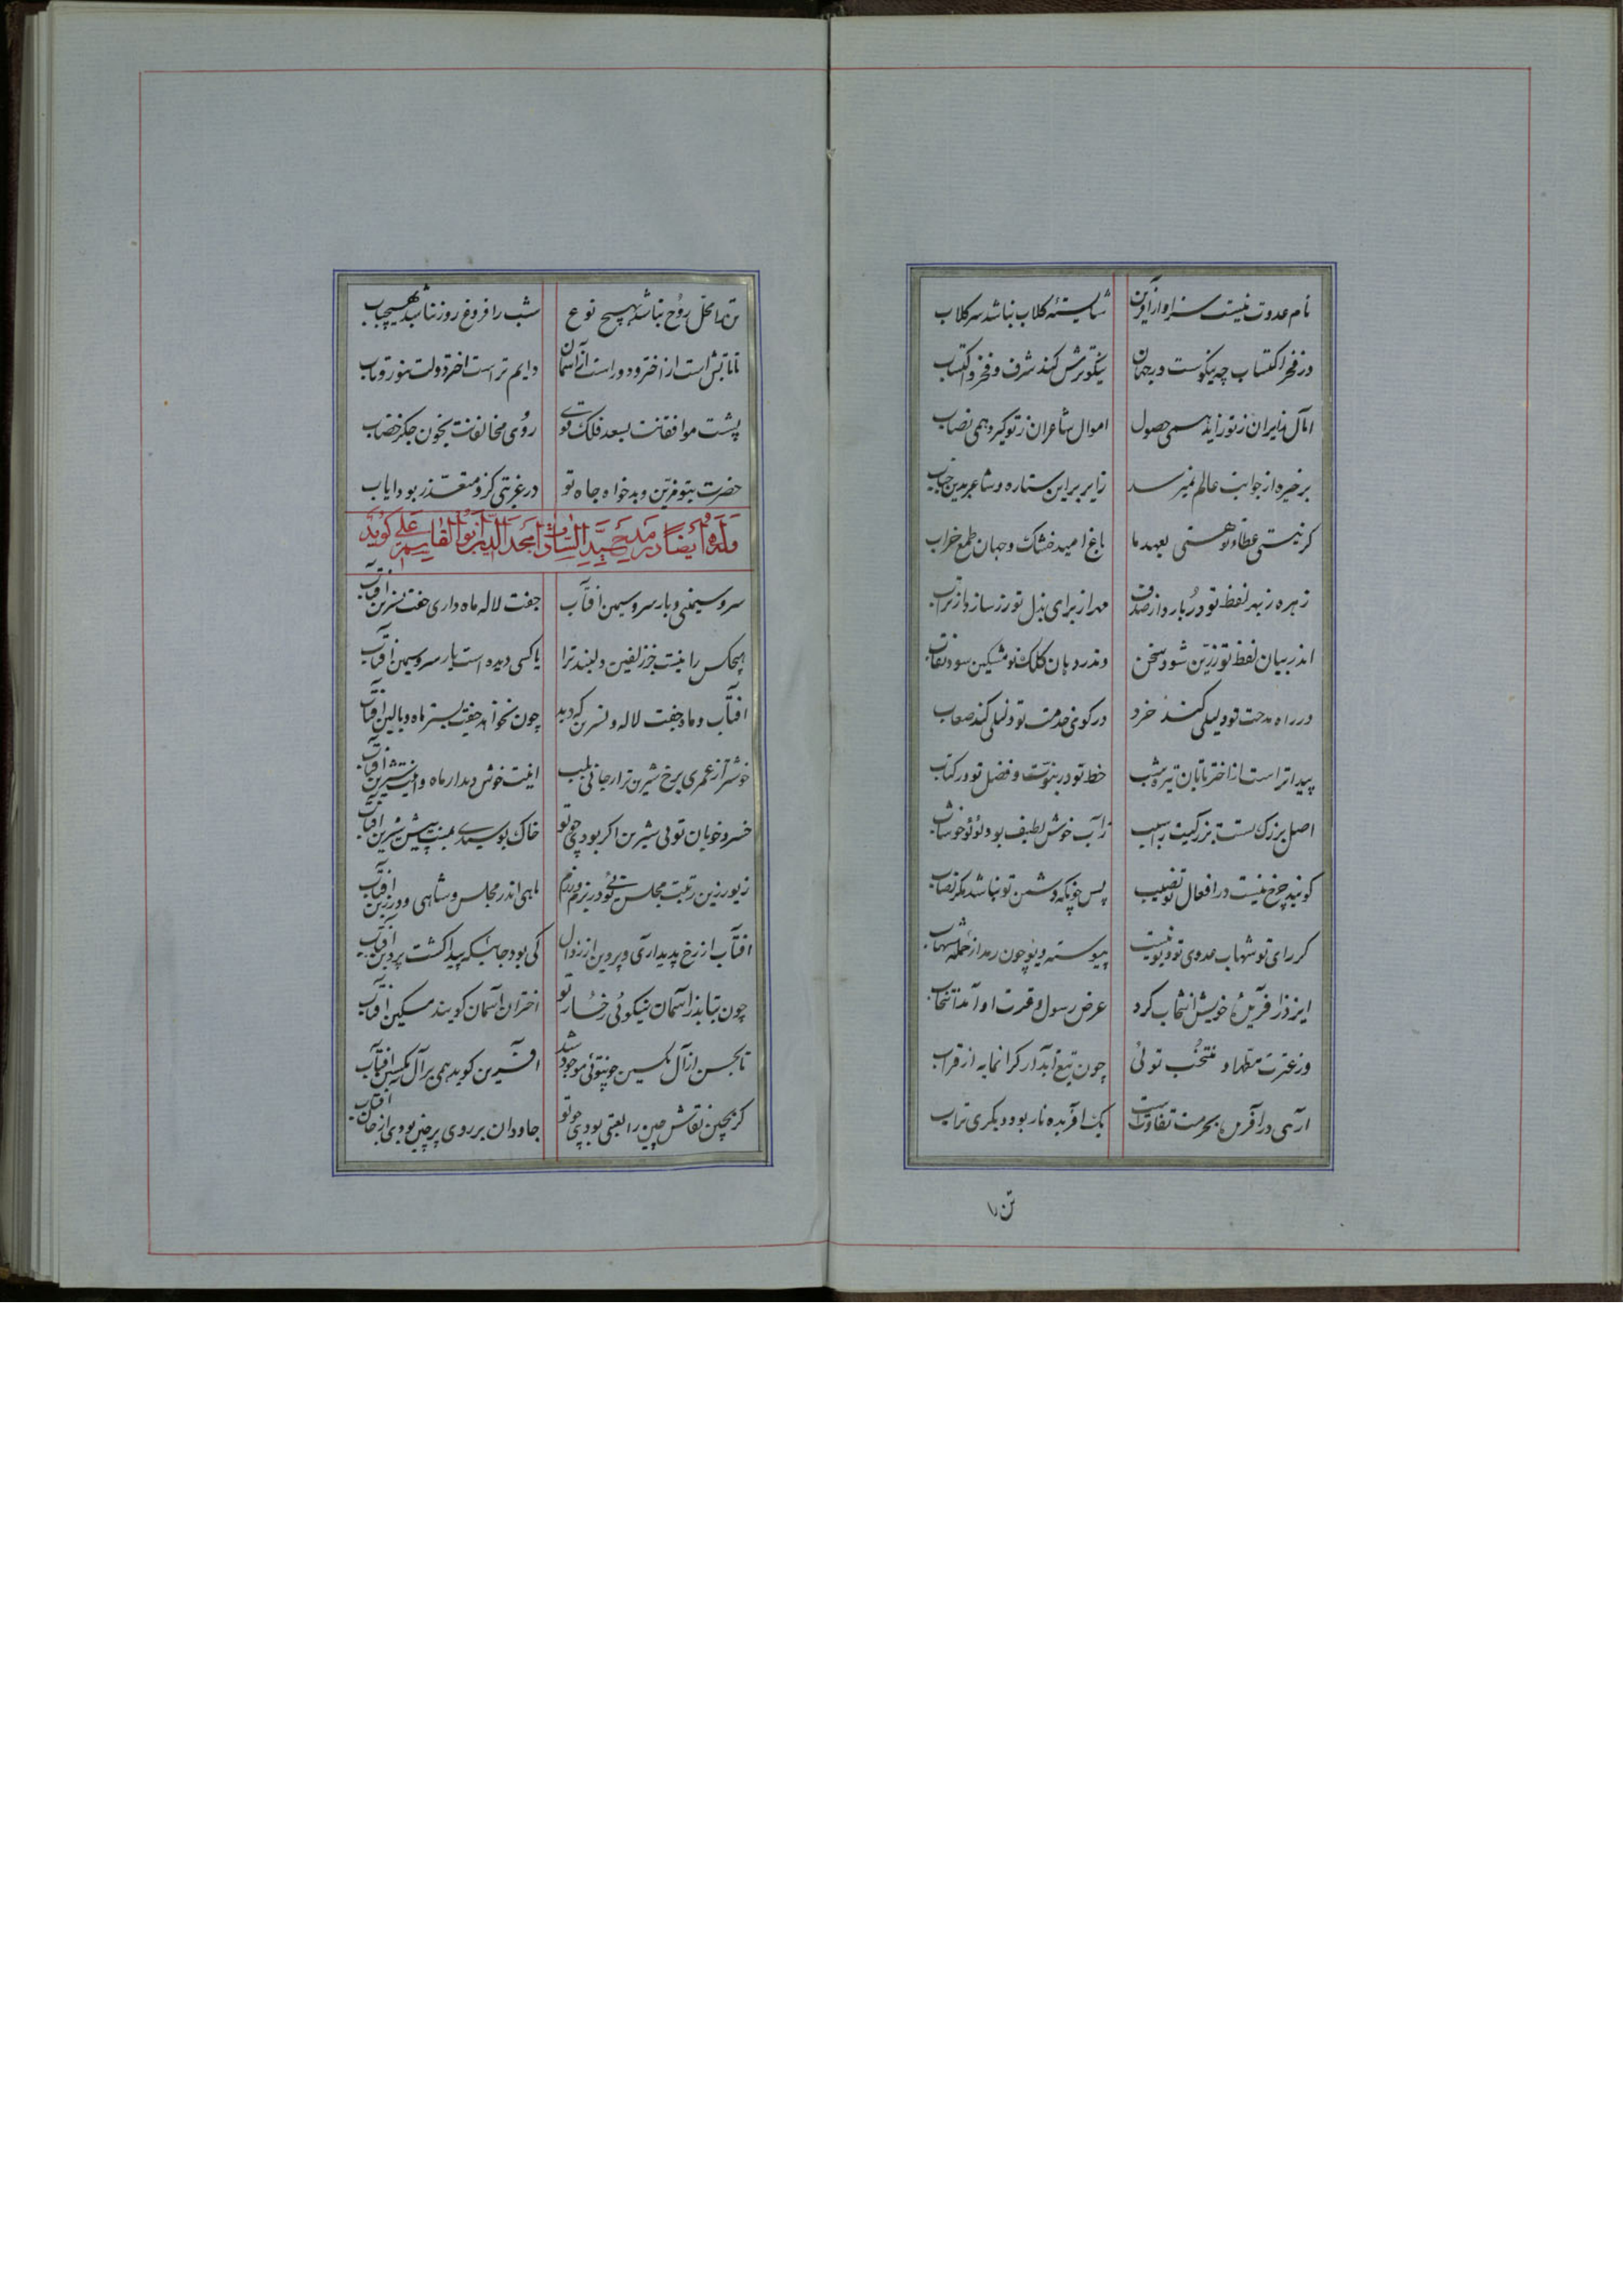 نام عدوت نیست سزاوار آفرین شایستهٔ کلاب نباشد سر کلاب
در فخر اکتساب چه نیکوست در جهان نیکوترش کند شرف و فخر و اکتساب
آمال زایران ز تو زاید همی حصول اموال شاعران ز تو گیرد همی نصاب
بر خیره از جوانب عالم نمیرسد زایر برین ستاره و شاعر بدین جناب
کر نیستی عطاء تو هستی بعهد ما باغ امید خشک و جهان طمع خراب
زهره ز بهر لفظ تو در بارد از صدف مهر از برای بذل تو زر سازد از تراب
اندر بیان لفظ تو زرین شود سخن وندر دهان کلک تو مشکین سود لعاب
در راه مدحت تو دلیلی کند خرد در کوی خدمت تو ذلیلی کند صعاب
پیداتر است از اختر تابان تیره شب خط تو در نبوت و فضل تو در کتاب
اصل بزرگ تست بزرگیت را سبب زآب خوش لطیف بود لؤلؤ خوشاب
کویند چرخ نیست در افعال تو مصیب پس چونکه دشمن تو نباشد مکر مصاب
کر رای تو شهاب عدوی تو دیو نیست پیوسته دیو چون رمد از حملهٔ شهاب
ایزد ز آفرینش خویش انتخاب کرد عرض رسول و عترت او آمد انتخاب
وز عترت مطهر او منتخب توئی چون تیغ آبدار کرانمایه از قراب
آری در آفرین بحرمت تفاوتست یک آفریده نار بود و دیگری تراب
تن را
تن را محل روح نباشد بهیچ نوع شب را فروغ روز نباشد بهیچ باب
تا تابش است از اختر و دور است از آسمان دایم تراست اختر دولت بنور و تاب
پشت موافقانت بسعد فلک قوی روی مخالفانت بخون جگر خضاب
حضرت بتو مزین و بدخواه جاه تو در غربتی کزو متعذر بود ایاب
وله ایضا در مدیح سید السادات امجد الدین ابو القاسم علی گوید
سرو سیمینی و بار سرو سیمین آفتاب جفت لاله ماه داری جفت نسرین آفتاب
هیچکس را نیست جز زلفین دلبند ترا یا کسی دیده است بار سرو سیمین آفتاب
آفتاب و ماه جفت لاله و نسرین که دید چون نخواهد جفت بستر ماه و بالین آفتاب
خوشتر از عمری برخ شیرین تر از جانی بلب اینت خوش دیدار ماه و اینت شیرین آفتاب
خسرو خوبان توئی شیرین اگر بودی چو تو خاک بوسیدی بپیش شیرین آفتاب
زیور زین زینت مجلس توئی در بزم و رزم ماهی اندر مجلس و شاهی و در زین آفتاب
آفتاب از رخ پدید آری و پروین از زلال کی بود جائیکه پیدا گشت پروین آفتاب
چون بتابد ز آسمان نیکوئی رخسار تو اختران آسمان گویند مسکین آفتاب
تا بحسن از آل یکسین چو توئی موجود شد آفرین گوید همی بر آل یکسین آفتاب
کر بچین نقاش چین را لعبتی بودی چو تو جاودان بر روی پرچین بودی از چین آفتاب